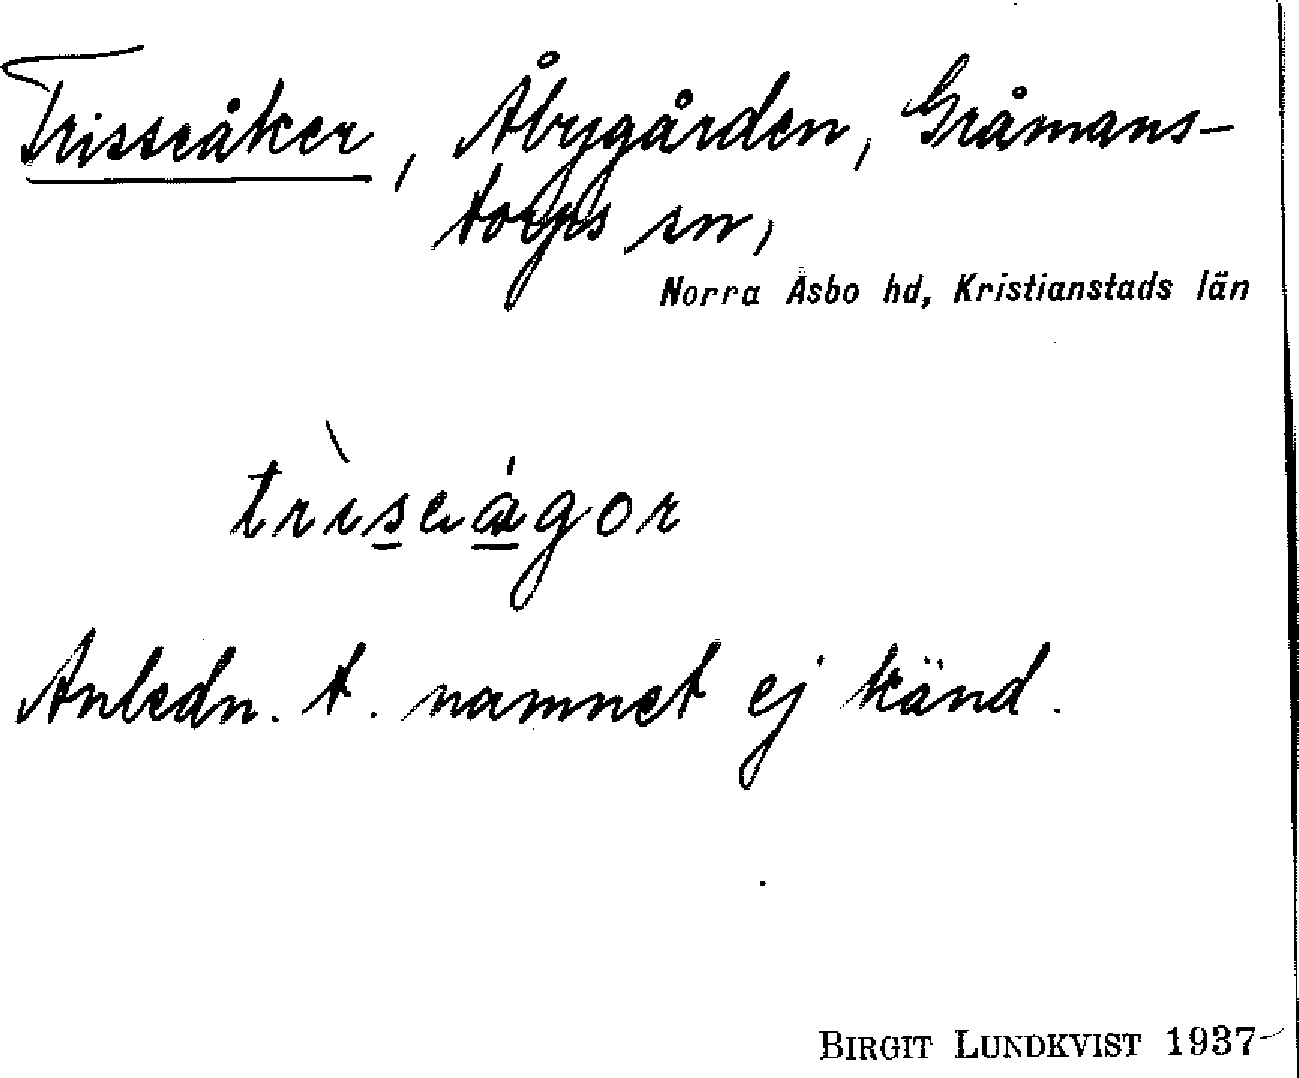 Trisseåker, Åbygården, Gråmans-
torps sn,
Norra Åsbo hd, Kristianstads län
trìseågor
Anledn. t. namnet ej känd.
BIRGIT LUNDKVIST 1937